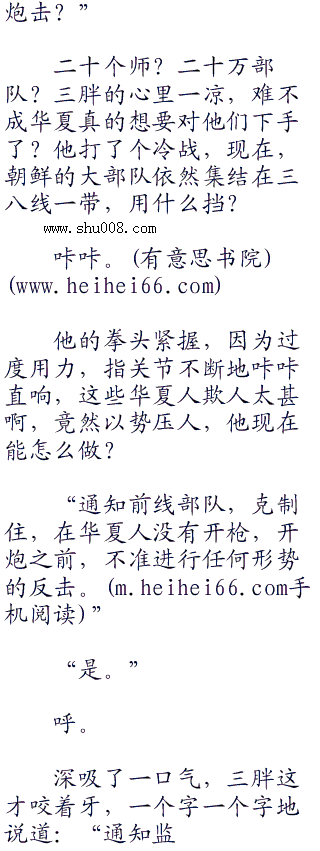 炮击？”
二十个师？二十万部
队？三胖的心里一凉，难不
成华夏真的想要对他们下手
了？他打了个冷战，现在，
朝鲜的大部队依然集结在三
八线一带，用什么挡？
www.shu008.com
咔咔。(有意思书院)
(www.heihei66.com)
他的拳头紧握，因为过
度用力，指关节不断地咔咔
直响，这些华夏人欺人太甚
啊，竟然以势压人，他现在
能怎么做？
“通知前线部队，克制
住，在华夏人没有开枪，开
炮之前，不准进行任何形势
的反击。(m.heihei66.com手
机阅读)”
“是。”
呼。
深吸了一口气，三胖这
才咬着牙，一个字一个字地
说道：“通知监